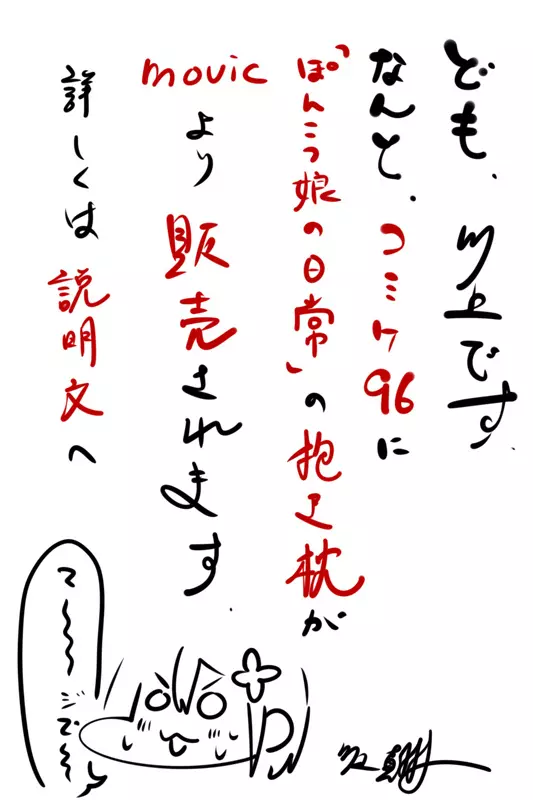 ども、川上です。
なんと、コミケ96に
「ぽんこつ娘の日常」の抱き枕が
movicより販売されます。
詳しくは説明文へ
て～～～ジで～～
川上真樹